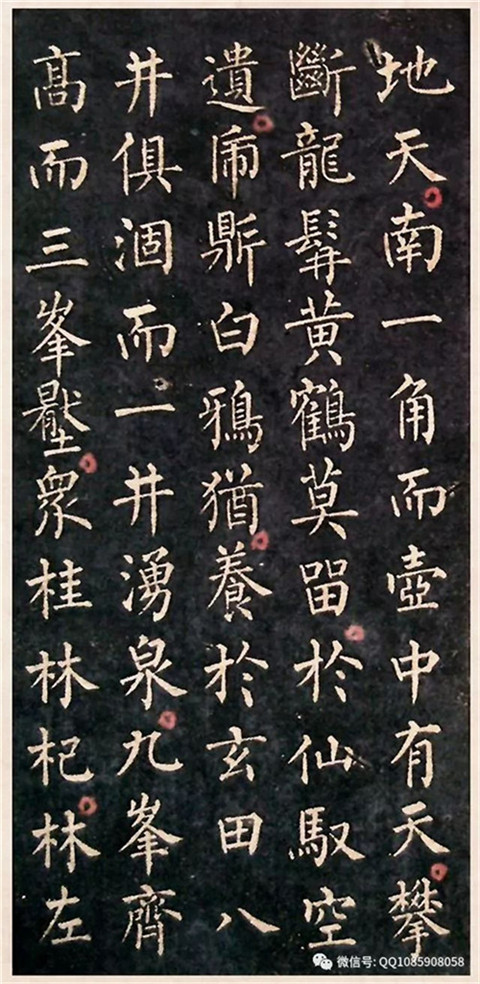 地天南一角而壺中有天攀
斷龍髯黄鶴莫畱於仙馭空
遺乕鼎白鴉猶養於玄田八
井俱涸而一井湧泉九峯齊
髙而三峯壓衆桂林杞林左
微信号: QQ1085908058